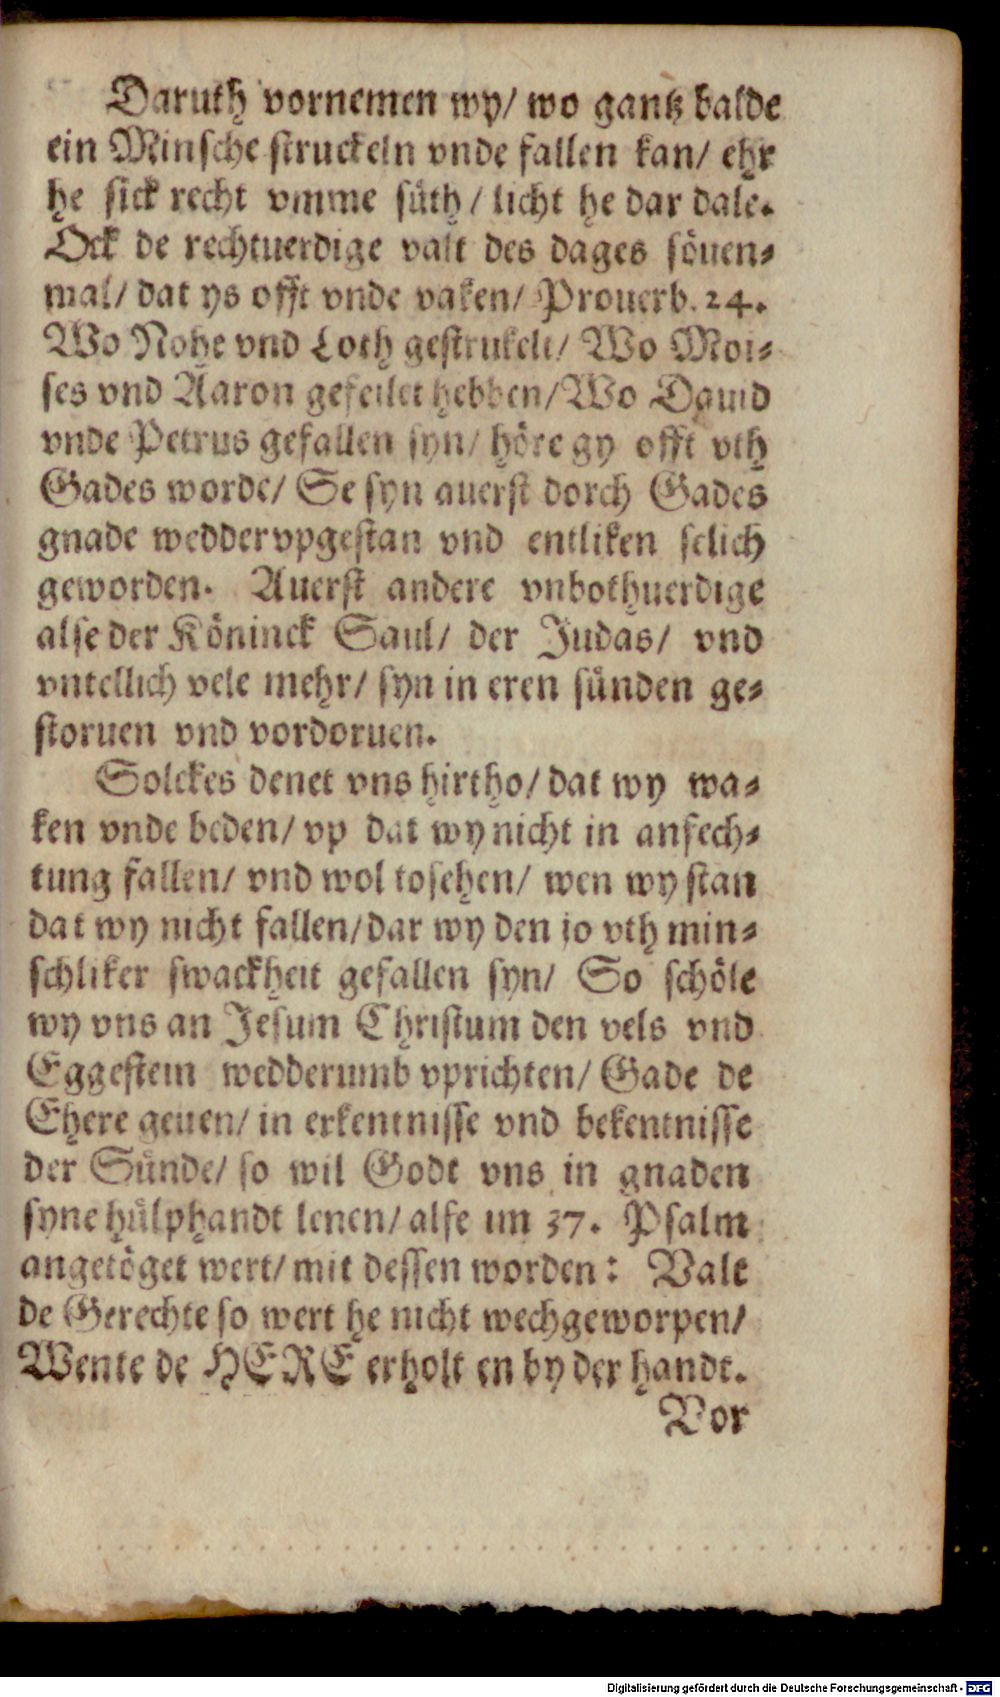 Daruth vornemen wy/ wo gantz balde
ein Minsche struckeln vnde fallen kan/ ehr
he sick recht vmme süth/ licht he dar dale.
Ock de rechtuerdige valt des dages söuen-
mal/ dat ys offt vnde vaken/ Prouerb. 24.
Wo Nohe vnd Loth gestrukelt/ Wo Moi-
ses vnd Aaron gefeilet hebben/ Wo Dauid
vnde Petrus gefallen syn/ höre gy offt vth
Gades worde/ Se syn auerst dorch Gades
gnade wedder vpgestan vnd entliken selich
geworden. Auerst andere vnbothuerdige
alse der Köninck Saul/ der Judas/ vnd
vntellich vele mehr/ syn in eren sünden ge-
storuen vnd vordoruen.
Solckes denet vns hirtho/ dat wy wa-
ken vnde beden/ vp dat wy nicht in anfech-
tung fallen/ vnd wol tosehen/ wen wy stan
dat wy nicht fallen/ dar wy den jo vth min-
schliker swackheit gefallen syn/ So schöle
wy vns an Jesum Christum den vels vnd
Eggestein wedderumb vprichten/ Gade de
Ehere geuen/ in erkentnisse vnd bekentnisse
der Sünde/ so wil Godt vns in gnaden
syne hülphandt lenen/ alse im 37. Psalm
angetöget wert/ mit dessen worden: Valt
de Gerechte so wert he nicht wechgeworpen/
Wente de HERE erholt en by der handt.
Vor
Digitalisierung gefördert durch die Deutsche Forschungsgemeinschaft - DFG